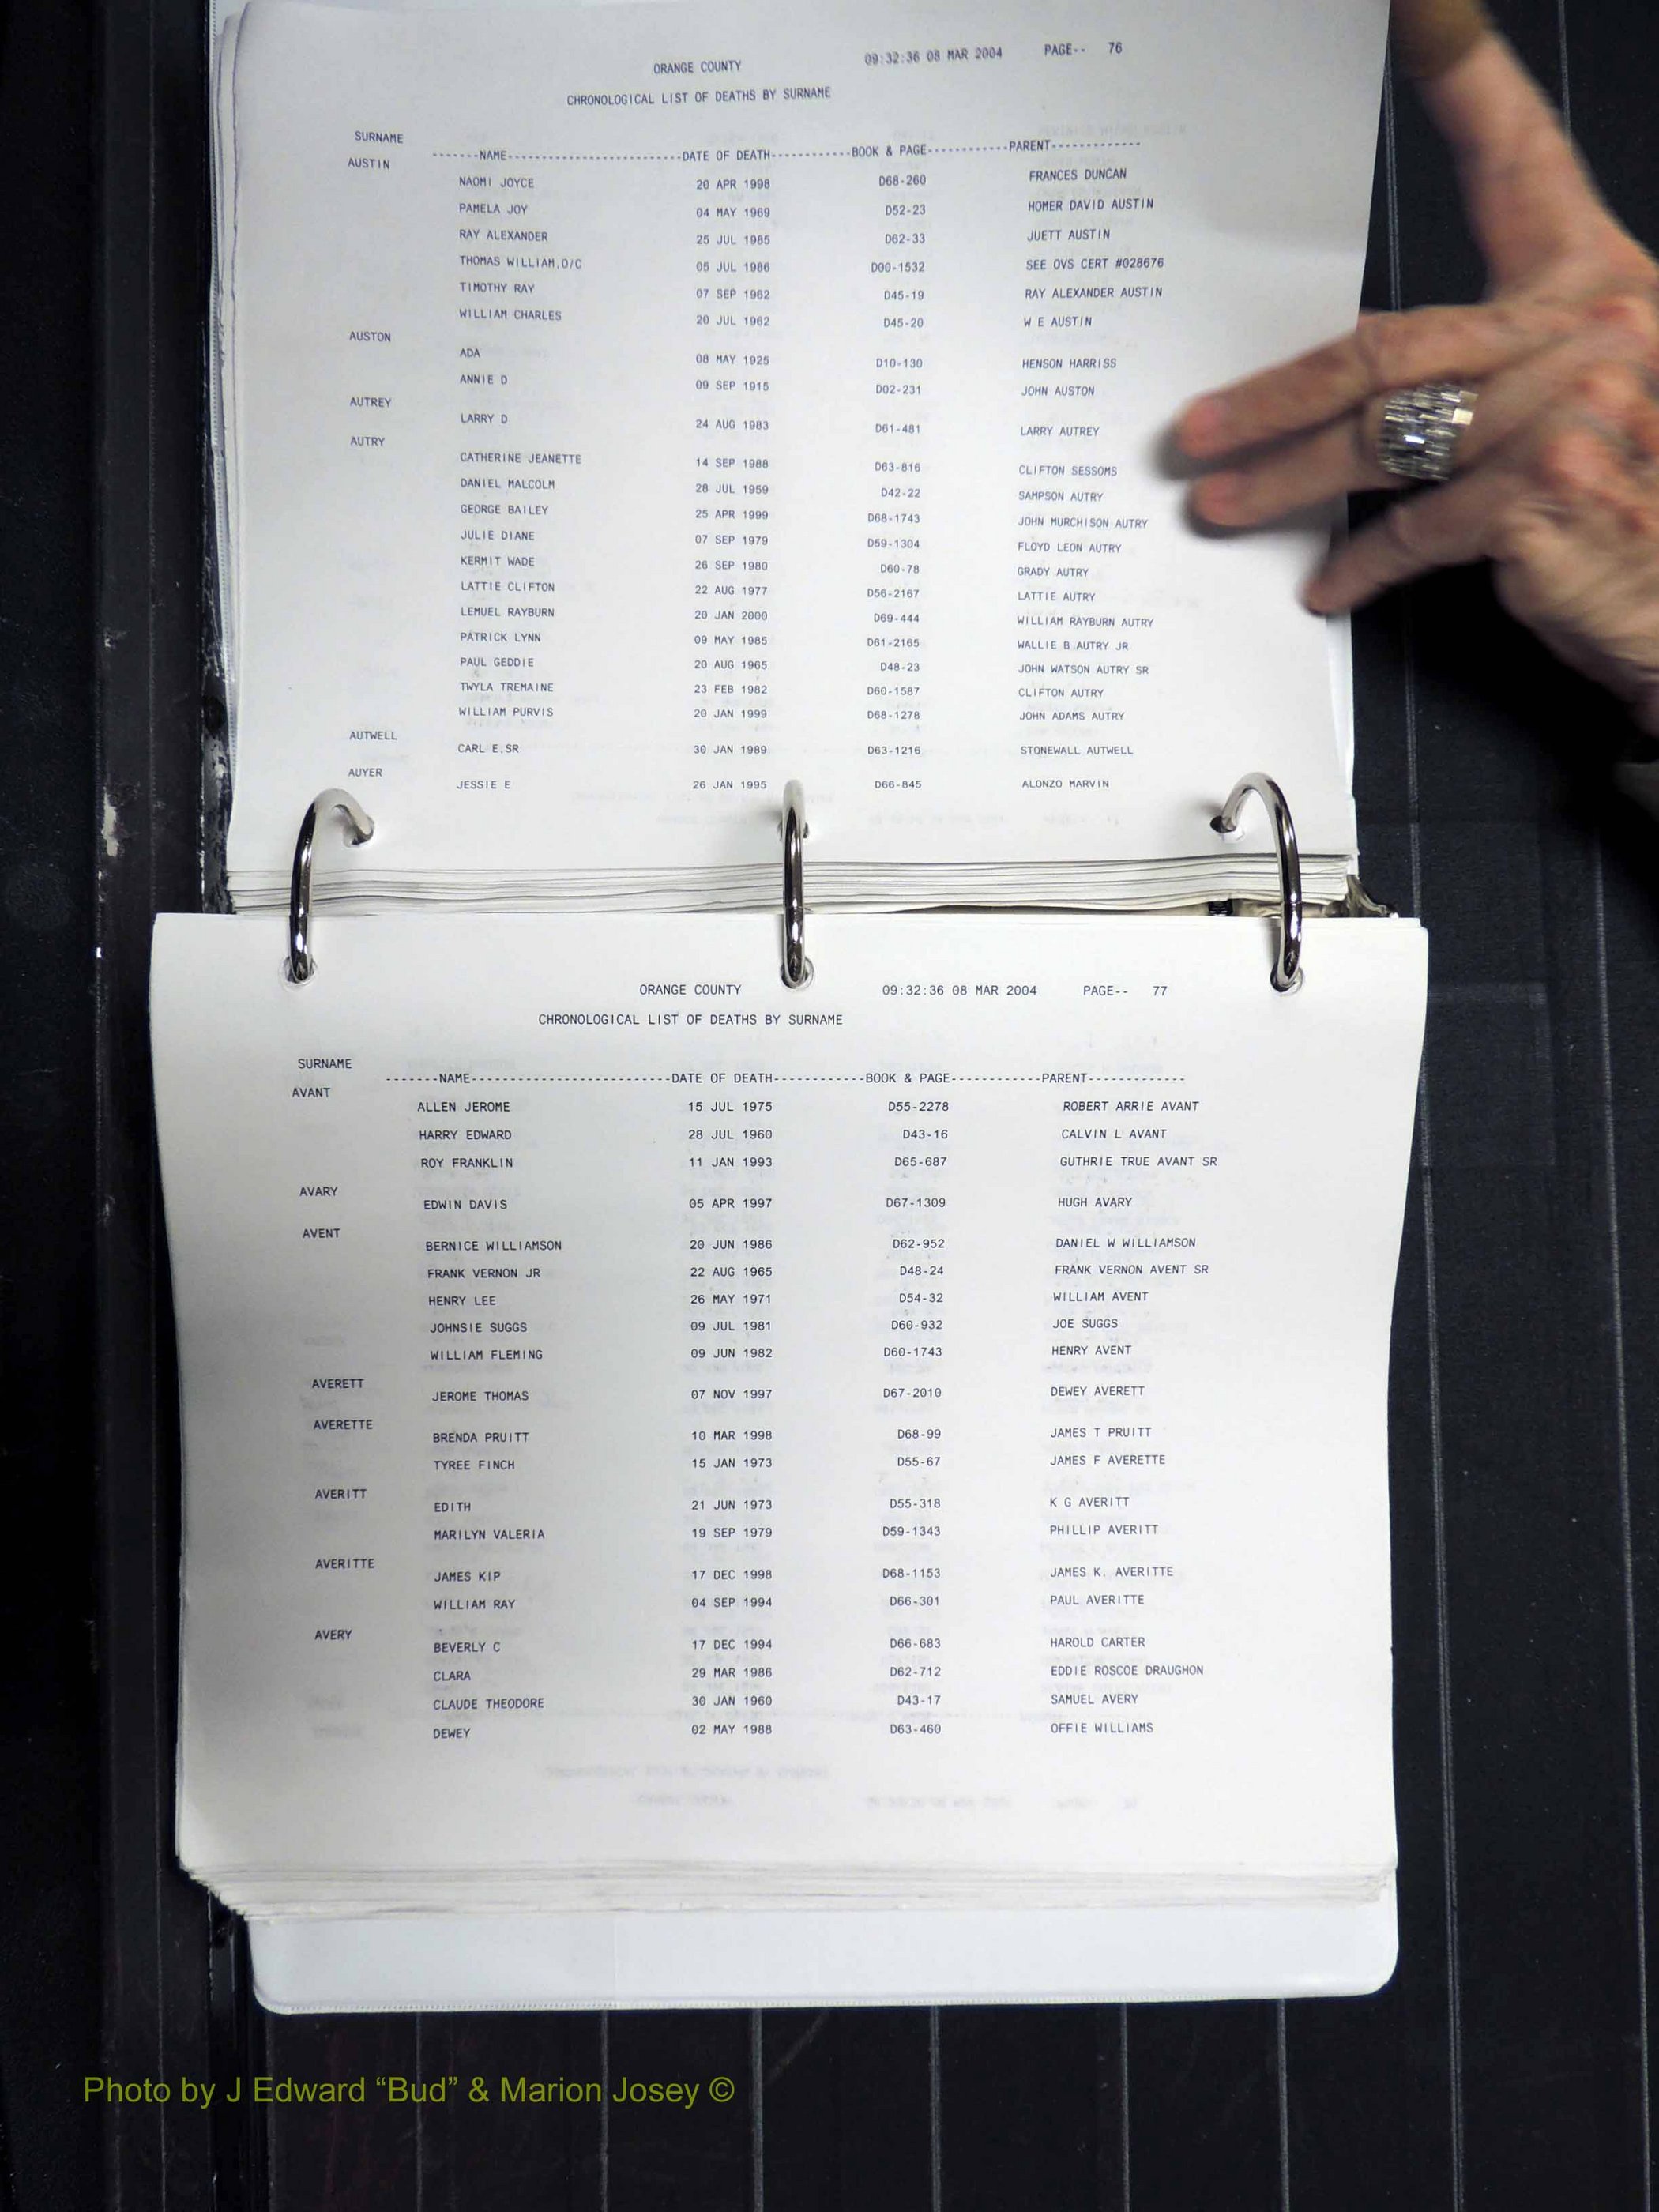 ORANGE COUNTY 09:32:36 08 MAR 2004 PAGE-- 76
CHRONOLOGICAL LIST OF DEATHS BY SURNAME
SURNAME
-------NAME-------------------------DATE OF DEATH-----------BOOK & PAGE-----------PARENT-------------
AUSTIN
NAOMI JOYCE 20 APR 1998 D68-260 FRANCES DUNCAN
PAMELA JOY 04 MAY 1969 D52-23 HOMER DAVID AUSTIN
RAY ALEXANDER 25 JUL 1985 D62-33 JUETT AUSTIN
THOMAS WILLIAM,O/C 05 JUL 1986 D00-1532 SEE OVS CERT #028676
TIMOTHY RAY 07 SEP 1962 D45-19 RAY ALEXANDER AUSTIN
WILLIAM CHARLES 20 JUL 1962 D45-20 W E AUSTIN
AUSTON
ADA 08 MAY 1925 D10-130 HENSON HARRISS
ANNIE D 09 SEP 1915 D02-231 JOHN AUSTON
AUTREY
LARRY D 24 AUG 1983 D61-481 LARRY AUTREY
AUTRY
CATHERINE JEANETTE 14 SEP 1988 D63-816 CLIFTON SESSOMS
DANIEL MALCOLM 28 JUL 1959 D42-22 SAMPSON AUTRY
GEORGE BAILEY 25 APR 1999 D68-1743 JOHN MURCHISON AUTRY
JULIE DIANE 07 SEP 1979 D59-1304 FLOYD LEON AUTRY
KERMIT WADE 26 SEP 1980 D60-78 GRADY AUTRY
LATTIE CLIFTON 22 AUG 1977 D56-2167 LATTIE AUTRY
LEMUEL RAYBURN 20 JAN 2000 D69-444 WILLIAM RAYBURN AUTRY
PATRICK LYNN 09 MAY 1985 D61-2165 WALLIE B.AUTRY JR
PAUL GEDDIE 20 AUG 1965 D48-23 JOHN WATSON AUTRY SR
TWYLA TREMAINE 23 FEB 1982 D60-1587 CLIFTON AUTRY
WILLIAM PURVIS 20 JAN 1999 D68-1278 JOHN ADAMS AUTRY
AUTWELL
CARL E,SR 30 JAN 1989 D63-1216 STONEWALL AUTWELL
AUYER
JESSIE E 26 JAN 1995 D66-845 ALONZO MARVIN
ORANGE COUNTY 09:32:36 08 MAR 2004 PAGE-- 77
CHRONOLOGICAL LIST OF DEATHS BY SURNAME
SURNAME
-------NAME-------------------------DATE OF DEATH-----------BOOK & PAGE-----------PARENT-------------
AVANT
ALLEN JEROME 15 JUL 1975 D55-2278 ROBERT ARRIE AVANT
HARRY EDWARD 28 JUL 1960 D43-16 CALVIN L AVANT
ROY FRANKLIN 11 JAN 1993 D65-687 GUTHRIE TRUE AVANT SR
AVARY
EDWIN DAVIS 05 APR 1997 D67-1309 HUGH AVARY
AVENT
BERNICE WILLIAMSON 20 JUN 1986 D62-952 DANIEL W WILLIAMSON
FRANK VERNON JR 22 AUG 1965 D48-24 FRANK VERNON AVENT SR
HENRY LEE 26 MAY 1971 D54-32 WILLIAM AVENT
JOHNSIE SUGGS 09 JUL 1981 D60-932 JOE SUGGS
WILLIAM FLEMING 09 JUN 1982 D60-1743 HENRY AVENT
AVERETT
JEROME THOMAS 07 NOV 1997 D67-2010 DEWEY AVERETT
AVERETTE
BRENDA PRUITT 10 MAR 1998 D68-99 JAMES T PRUITT
TYREE FINCH 15 JAN 1973 D55-67 JAMES F AVERETTE
AVERITT
EDITH 21 JUN 1973 D55-318 K G AVERITT
MARILYN VALERIA 19 SEP 1979 D59-1343 PHILLIP AVERITT
AVERITTE
JAMES KIP 17 DEC 1998 D68-1153 JAMES K. AVERITTE
WILLIAM RAY 04 SEP 1994 D66-301 PAUL AVERITTE
AVERY
BEVERLY C 17 DEC 1994 D66-683 HAROLD CARTER
CLARA 29 MAR 1986 D62-712 EDDIE ROSCOE DRAUGHON
CLAUDE THEODORE 30 JAN 1960 D43-17 SAMUEL AVERY
DEWEY 02 MAY 1988 D63-460 OFFIE WILLIAMS
Photo by J Edward “Bud” & Marion Josey ©